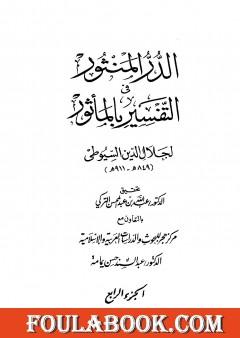 الدر المنثور
في
التفسير بالمأثور
لجلال الدين السيوطي
(٨٤٩هـ - ٩١١هـ)
تحقيق
الدكتور عبد الله بن عبد المحسن التركي
بالتعاون مع
مركز هجر للبحوث والدراسات العربية والإسلامية
الدكتور عبد السند حسن يمامة
الجزء الرابع
FOULABOOK.COM